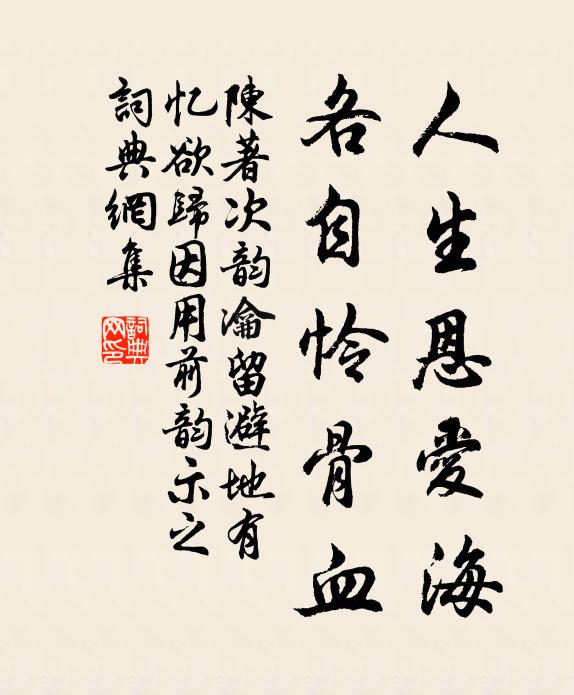 人生恩愛海
各自怜骨血
陳著次韵瀹留避地有
忆欲歸因用前韵示之
詞典網集
詞典
网印